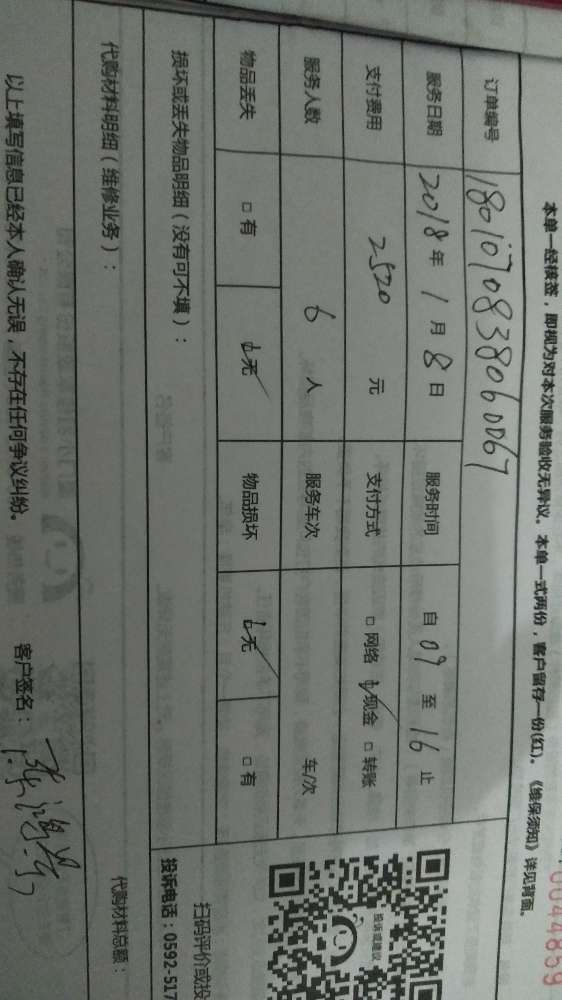 0044859
本单一经核签，即视为对本次服务验收无异议。本单一式两份，客户留存一份(红)。《维保须知》详见背面。
订单编号 1801070838060067
服务日期 2018年1月8日 服务时间 自09至16止
支付费用 2520元 支付方式 □网络 ☑现金 □转账
服务人数 6人 服务车次 车/次
物品丢失 □有 ☑无 物品损坏 ☑无 □有
损坏或丢失物品明细（没有可不填）：
代购材料明细（维修业务）：
代购材料总额：
以上填写信息已经本人确认无误，不存在任何争议纠纷。 客户签名：
投诉或建议
扫码评价或投
投诉电话：0592-517